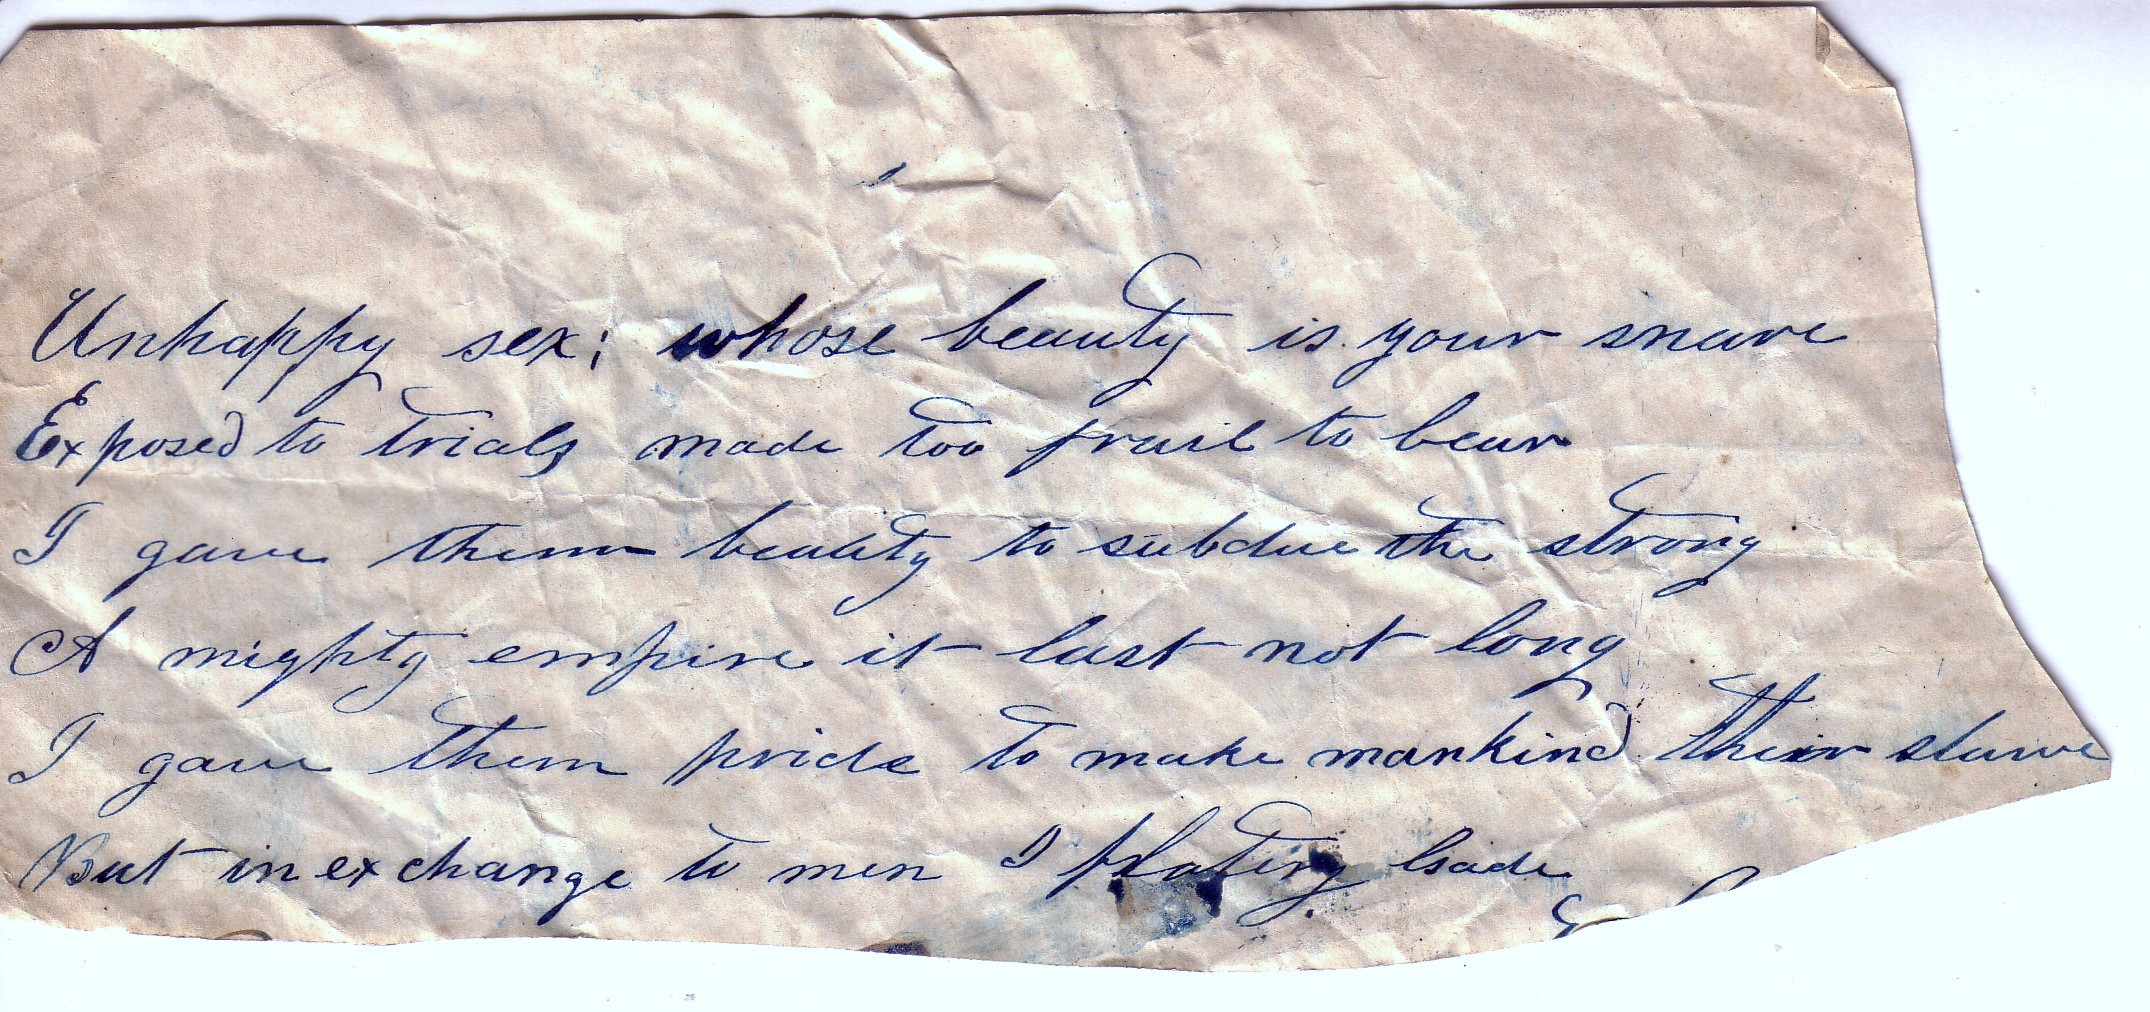 Unhappy sex; whose beauty is your snare
Exposed to trials made too frail to bear
I gave them beauty to subdue the strong
A mighty empire it last not long
I gave them pride to make mankind their slave
But in exchange to men I flatery